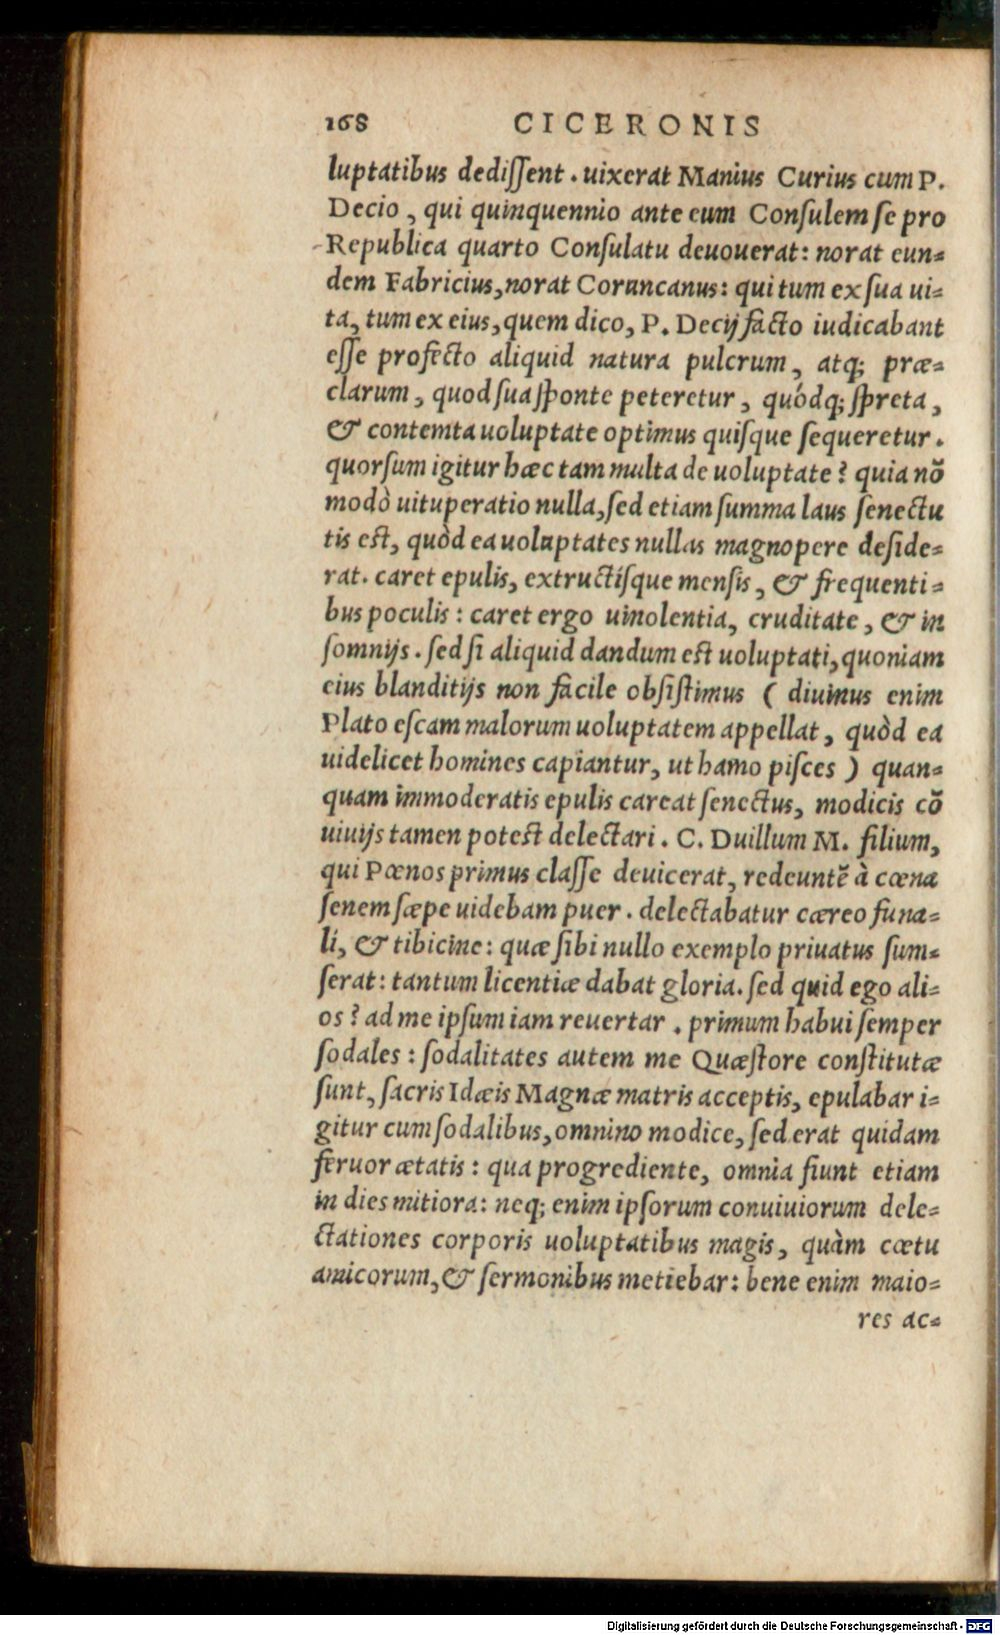 168 CICERONIS
luptatibus dediſſent. uixerat Manius Curius cum P.
Decio, qui quinquennio ante eum Conſulem ſe pro
Republica quarto Conſulatu deuouerat: norat eun=
dem Fabricius, norat Coruncanus: qui tum ex ſua ui=
ta, tum ex eius, quem dico, P. Decij facto iudicabant
eſſe profecto aliquid natura pulcrum, atq; præ=
clarum, quod ſua ſponte peteretur, quódq; ſpreta,
& contemta uoluptate optimus quiſque ſequeretur.
quorſum igitur hæc tam multa de uoluptate? quia nõ
modò uituperatio nulla, ſed etiam ſumma laus ſenectu
tis eſt, quòd ea uoluptates nullas magnopere deſide=
rat. caret epulis, extructiſque menſis, & frequenti=
bus poculis: caret ergo uinolentia, cruditate, & in
ſomnijs. ſed ſi aliquid dandum eſt uoluptati, quoniam
eius blanditijs non facile obſiſtimus ( diuinus enim
Plato eſcam malorum uoluptatem appellat, quòd ea
uidelicet homines capiantur, ut hamo piſces ) quan=
quam immoderatis epulis careat ſenectus, modicis cõ
uiuijs tamen poteſt delectari. C. Duillum M. filium,
qui Pœnos primus claſſe deuicerat, redeuntẽ à cœna
ſenem ſæpe uidebam puer. delectabatur cæreo funa=
li, & tibicine: quæ ſibi nullo exemplo priuatus ſum=
ſerat: tantum licentiæ dabat gloria. ſed quid ego ali=
os? ad me ipſum iam reuertar. primum habui ſemper
ſodales: ſodalitates autem me Quæſtore conſtitutæ
ſunt, ſacris Idæis Magnæ matris acceptis, epulabar i=
gitur cum ſodalibus, omnino modice, ſed erat quidam
feruor ætatis: qua progrediente, omnia fiunt etiam
in dies mitiora: neq; enim ipſorum conuiuiorum dele=
ctationes corporis uoluptatibus magis, quàm cœtu
amicorum, & ſermonibus metiebar: bene enim maio=
res ac=
Digitalisierung gefördert durch die Deutsche Forschungsgemeinschaft - DFG